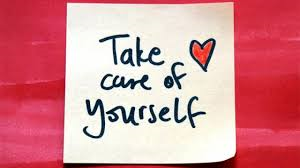 Take
care of
yourself